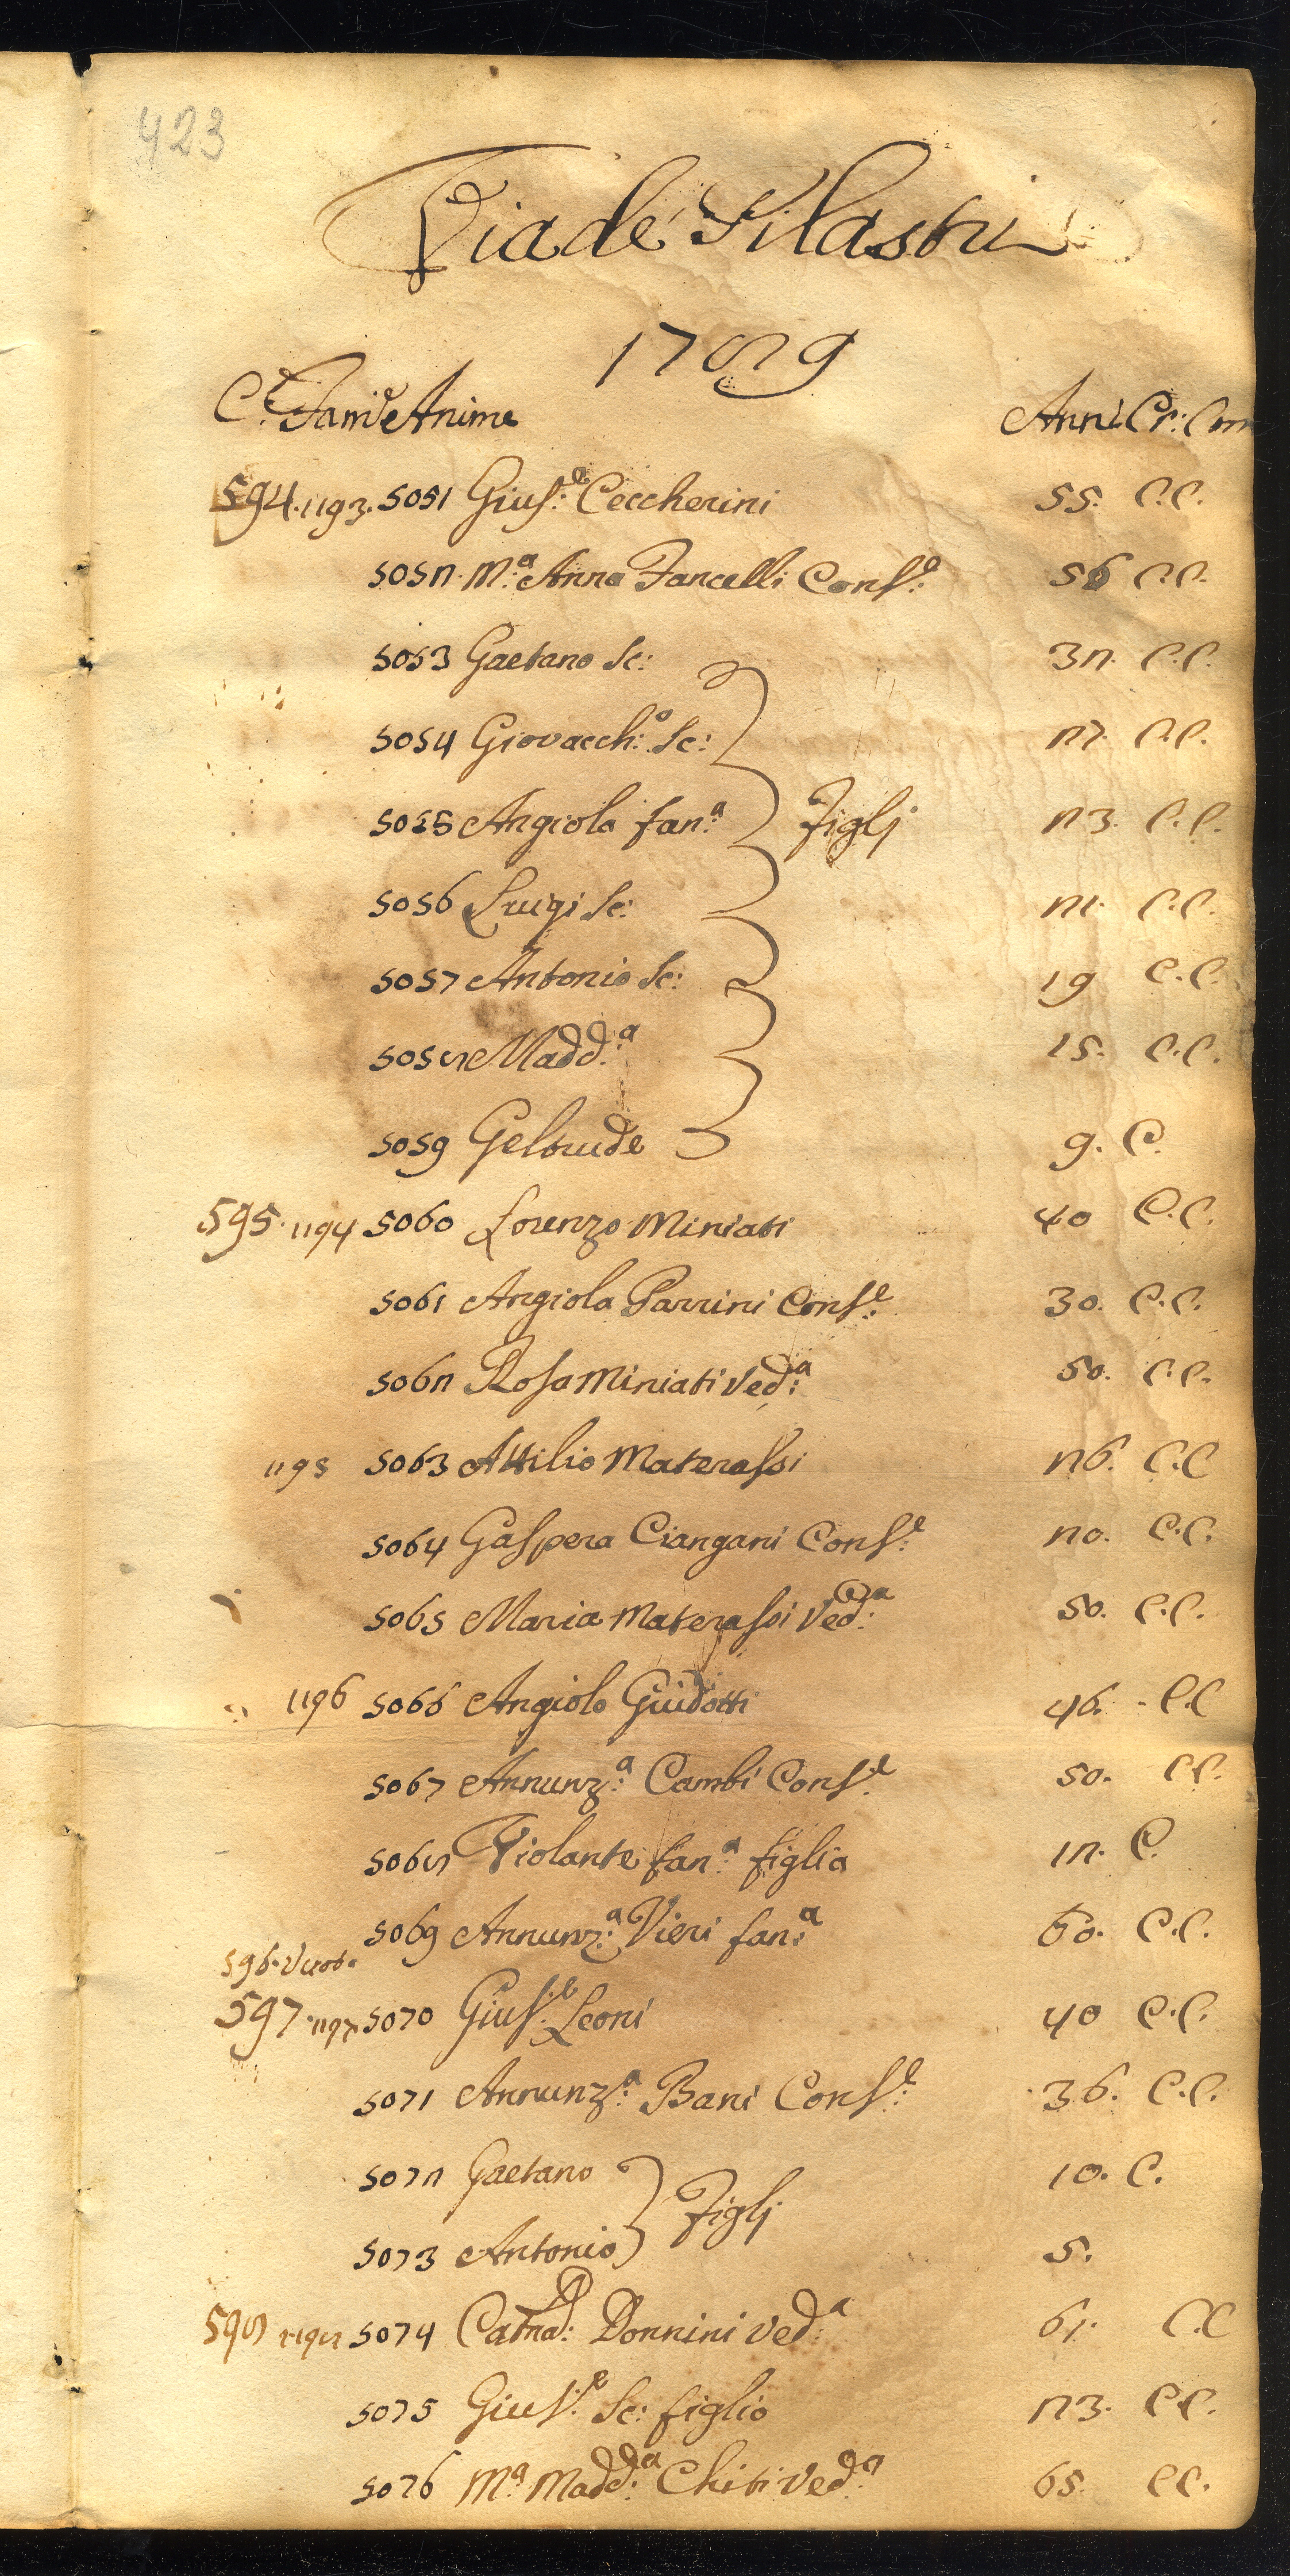 423
Via de' Pilastri
1789
C.e Fam.e Anime Anni Cr: Com
594. 1193. 5051 Gius:e Ceccherini 55. C.C.
5052. M:a Anna Fancelli Cons:e 56 C.C.
5053 Gaetano Sc: 32. C.C.
5054 Giovacch:o Sc: 27. C.C.
5055 Angiola fan:a Figlj 23. C.C.
5056 Luigi Sc: 21. C.C.
5057 Antonio Sc: 19 C.C.
5058 Madd:a 15. C.C.
5059 Geltrude 9. C.
595. 1194 5060 Lorenzo Miniati 40 C.C.
5061 Angiola Parrini Cons:e 30. C.C.
5062 Rosa Miniati Ved:a 50. C.C.
1195 5063 Attilio Materassi 26. C.C
5064 Gaspera Ciangani Cons:e 20. C.C.
5065 Maria Materassi Ved:a 50. C.C.
1196 5066 Angiolo Guidotti 46. C.C
5067 Annunz:a Cambi Cons:e 50. C.C.
5068 Violante fan:a figlia 12. C.
5069 Annunz:a Vieri fan:a 60. C.C.
596. Vuota
597. 1197. 5070 Gius:e Leoni 40 C.C.
5071 Annunz:a Bani Cons:e 36. C.C.
5072 Gaetano 10. C.
Figlj
5073 Antonio 5.
598 1198 5074 Catna: Donnini Ved:a 61. C.C
5075 Gius:e Sc: figlio 23. C.C.
5076 M:a Madd:a Chiti Ved:a 65. C.C.